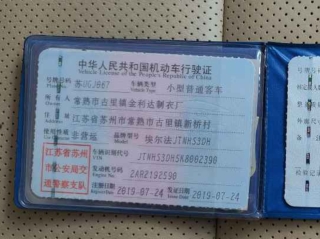 中华人民共和国机动车行驶证
Vehicle License of the People's Republic of China
号牌号码 苏UGJ867 车辆类型 小型普通客车
Plate No. Vehicle Type
所有人 常熟市古里镇金利达制衣厂
Owner
住址 江苏省苏州市常熟市古里镇新桥村
Address
使用性质 非营运 品牌型号 埃尔法JTNHS3DH
Use Character Model
江苏省苏州
市公安局交
通警察支队
车辆识别代号
VIN
发动机号码 2ARZ192590
Engine No.
注册日期 2019-07-24 发证日期 2019-07-24
Register Date Issue Date